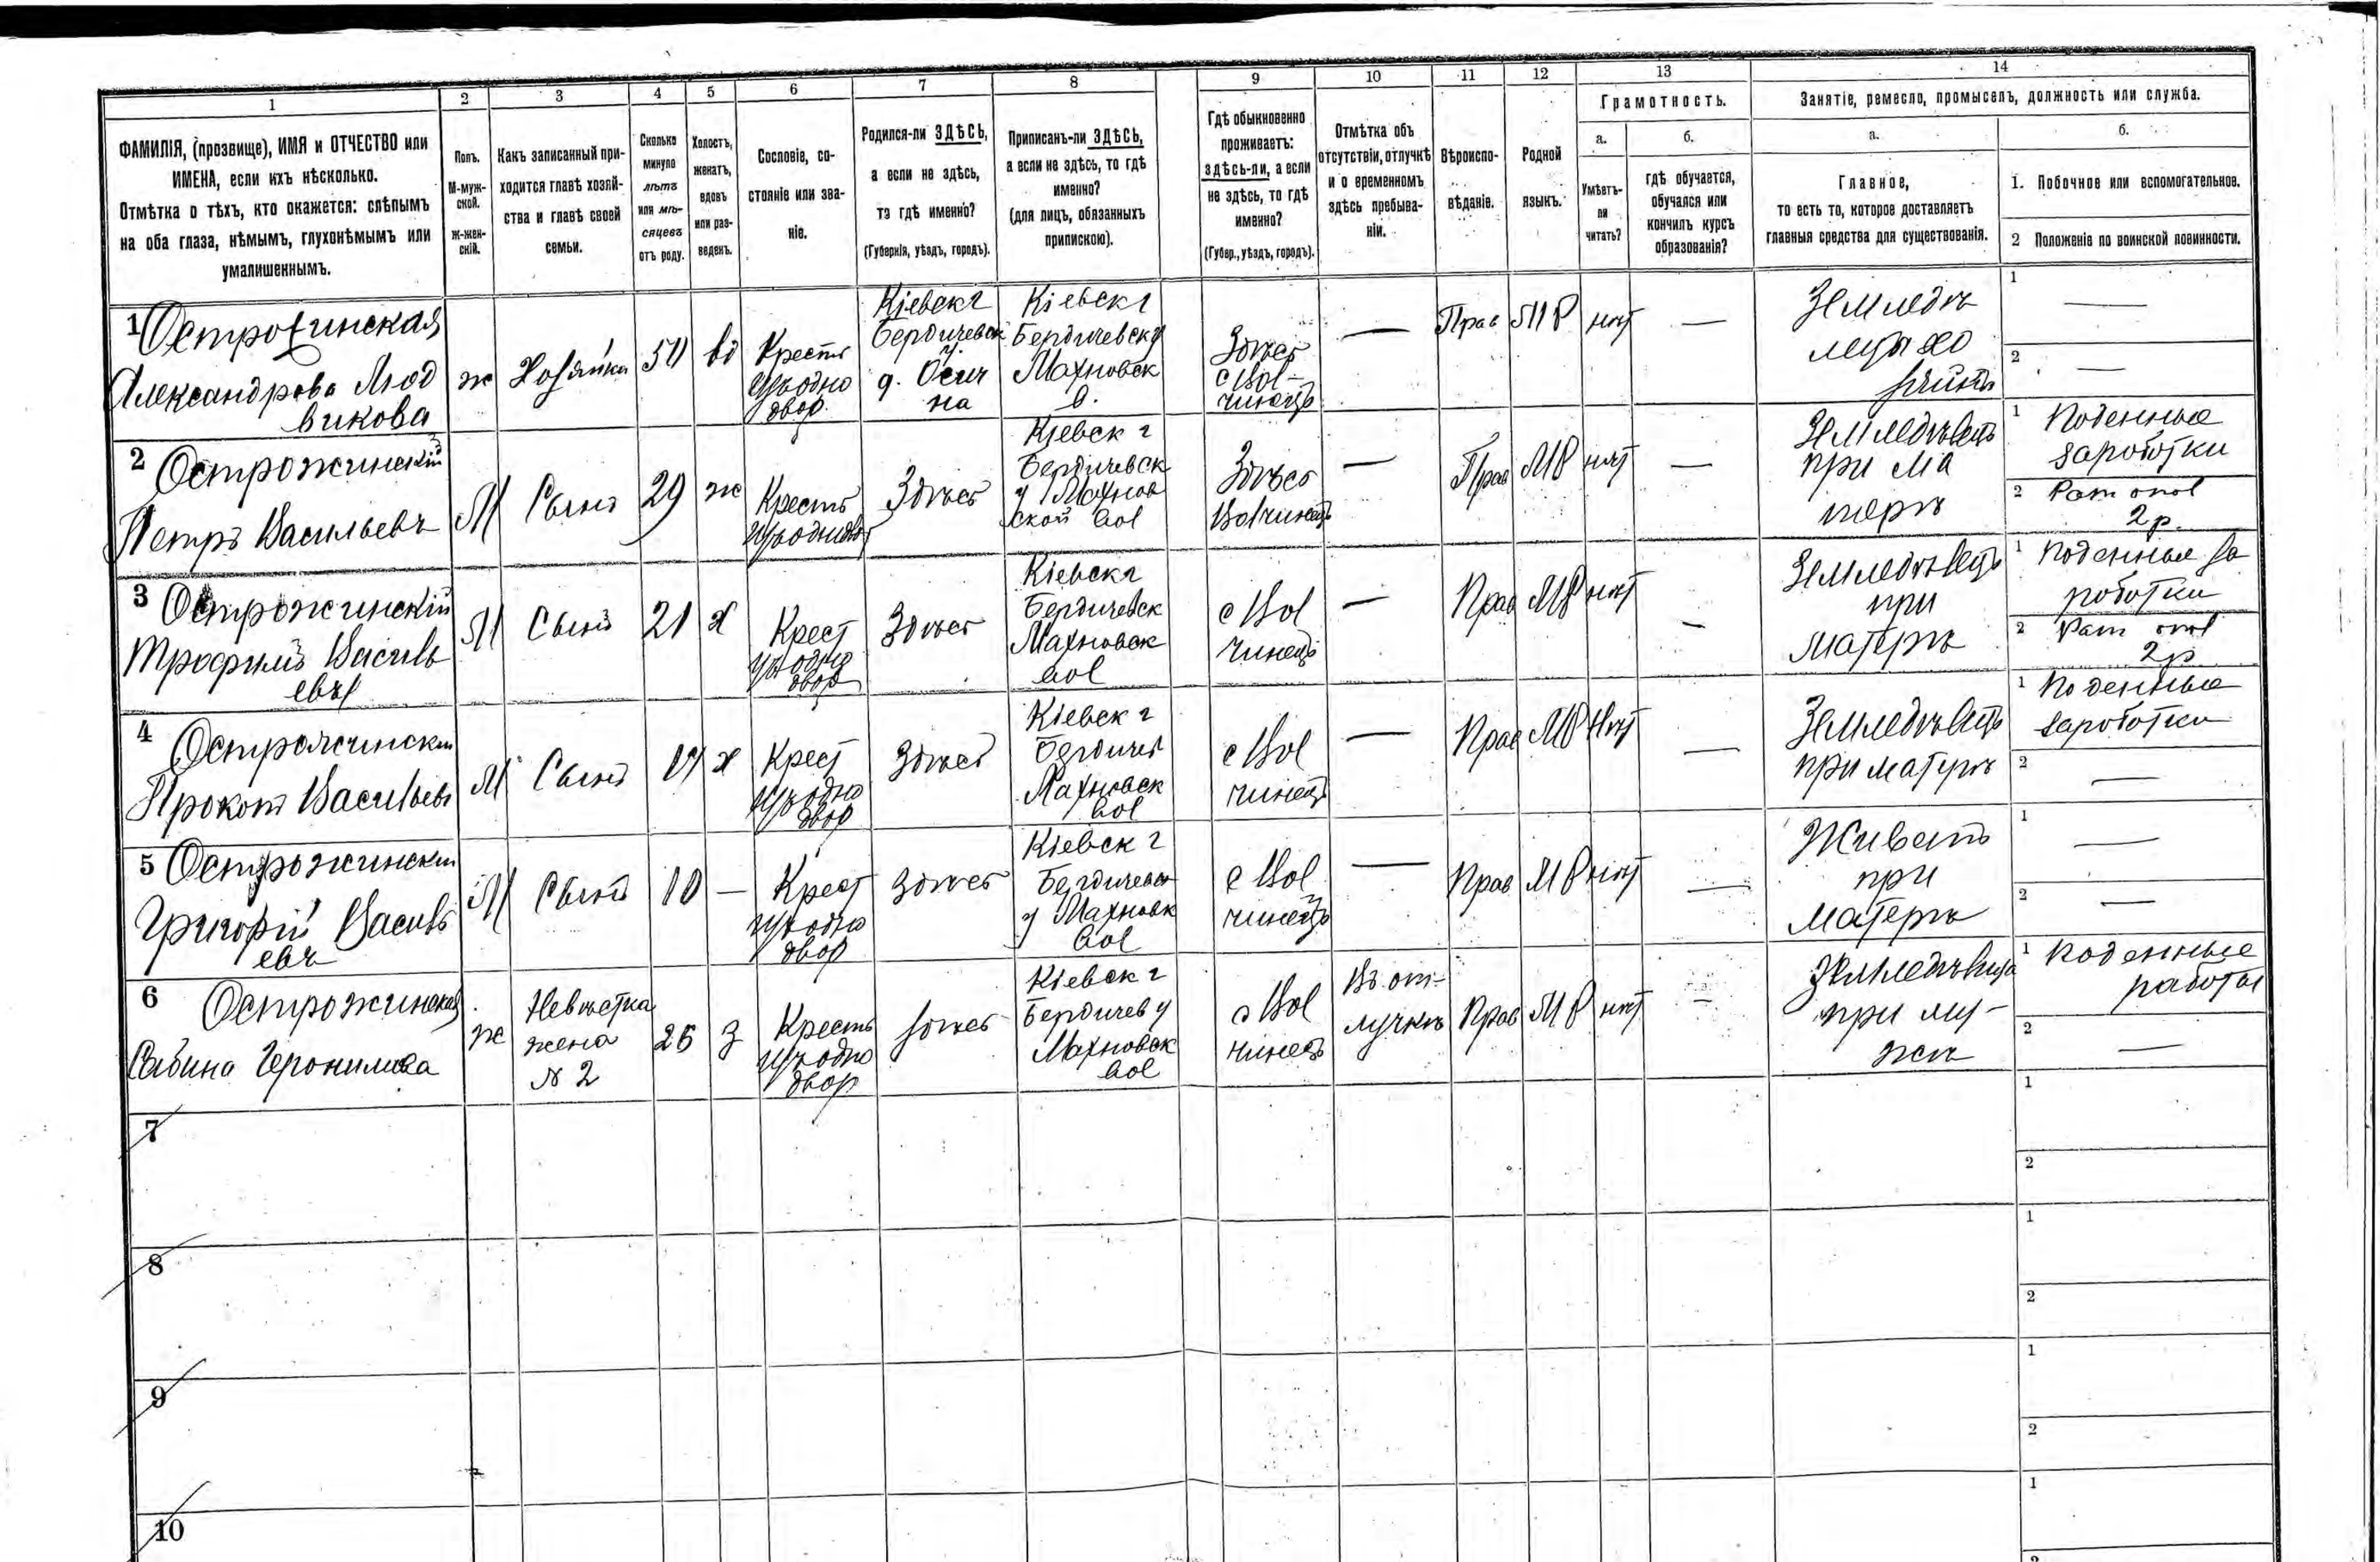 1
2
3
4
5
6
7
8
9
10
11
12
13
14
ФАМИЛІЯ, (прозвище), ИМЯ и ОТЧЕСТВО или
ИМЕНА, если ихъ нѣсколько.
Отмѣтка о тѣхъ, кто окажется: слѣпымъ
на оба глаза, нѣмымъ, глухонѣмымъ или
умалишеннымъ.
Полъ.
М-муж-
ской.
Ж-жен-
скій.
Какъ записанный при-
ходится главѣ хозяй-
ства и главѣ своей
семьи.
Сколько
минуло
лѣтъ
или мѣ-
сяцевъ
отъ роду.
Холостъ,
женатъ,
вдовъ
или раз-
веденъ.
Сословіе, со-
стояніе или зва-
ніе.
Родился-ли ЗДѢСЬ,
а если не здѣсь,
то гдѣ именно?
(Губернія, уѣздъ, городъ).
Приписанъ-ли ЗДѢСЬ,
а если не здѣсь, то гдѣ
именно?
(для лицъ, обязанныхъ
припискою).
Гдѣ обыкновенно
проживаетъ:
здѣсь-ли, а если
не здѣсь, то гдѣ
именно?
(Губер., уѣздъ, городъ).
Отмѣтка объ
отсутствіи, отлучкѣ
и о временномъ
здѣсь пребыва-
ніи.
Вѣроиспо-
вѣданіе.
Родной
языкъ.
Грамотность.
а.
Умѣетъ-
ли
читать?
б.
гдѣ обучается,
обучался или
кончилъ курсъ
образованія?
Занятіе, ремесло, промыселъ, должность или служба.
а.
Главное,
то есть то, которое доставляетъ
главныя средства для существованія.
б.
1. Побочное или вспомогательное.
2 Положеніе по воинской повинности.
1
Александрова Люд
викова
ж
Хозяйка
вд
Крестъ
изъ одно
двор.
Кіевск г
Бердичевск
у.
Кіевск г
Бердичевск у
Махновск
в.
Здѣсь
с Вол-
чинецъ
—
Прав
МР
нѣт
—
1 —
2 —
2 Острожинскій
Петръ Васильевъ
М
Сынъ
29
ж
Крестъ
изъ однодв
Здѣсь
Кіевск г
Бердичевск
у Махнов
ской вол
Здѣсь
Волчинецъ
—
Прав
МР
нѣт
—
Земледѣлецъ
при ма
терѣ
1 Поденные
заработки
2 Рат опол
2 р.
3 Острожинскій
Трофимъ Василь
евъ
М
Сынъ
21
х
Крест
изъ одно
двор
Здѣсь
Кіевск г
Бердичевск
Махновск
вол
с Вол
чинецъ
—
Прав
МР
нѣт
—
Земледѣлецъ
при
матерѣ
1 Поденные за
роботки
2 Рат опол
2 р
4 Острожински
Прокоп Васильевъ
М
Сынъ
х
Крест
изъ одно
двор
Здѣсь
Кіевск г
Бердичев
Махновск
вол
с Вол
чинецъ
—
Прав
МР
нѣт
—
Земледѣлецъ
при матерѣ
1 Поденные
заработки
2 —
5 Острожински
Григорій Василь
евъ
М
Сынъ
10
—
Крест
изъ одно
двор
Здѣсь
Кіевск г
Бердичевск
у Махновск
вол
с Вол
чинецъ
—
Прав
МР
нѣт
—
Живетъ
при
матерѣ
1 —
2 —
6 Острожинская
Сабина Іеронимова
ж
Невѣстка
жена
№ 2
з
Крестъ
изъ одно
двор
здѣсь
Кіевск г
Бердичев у
Махновск
вол
с Вол
чинецъ
Въ от-
лучкѣ
Прав
МР
нѣт
—
при му-
жѣ
1 Поденные
работы
2 —
7
1
2
8
1
2
9
1
2
10
1
2